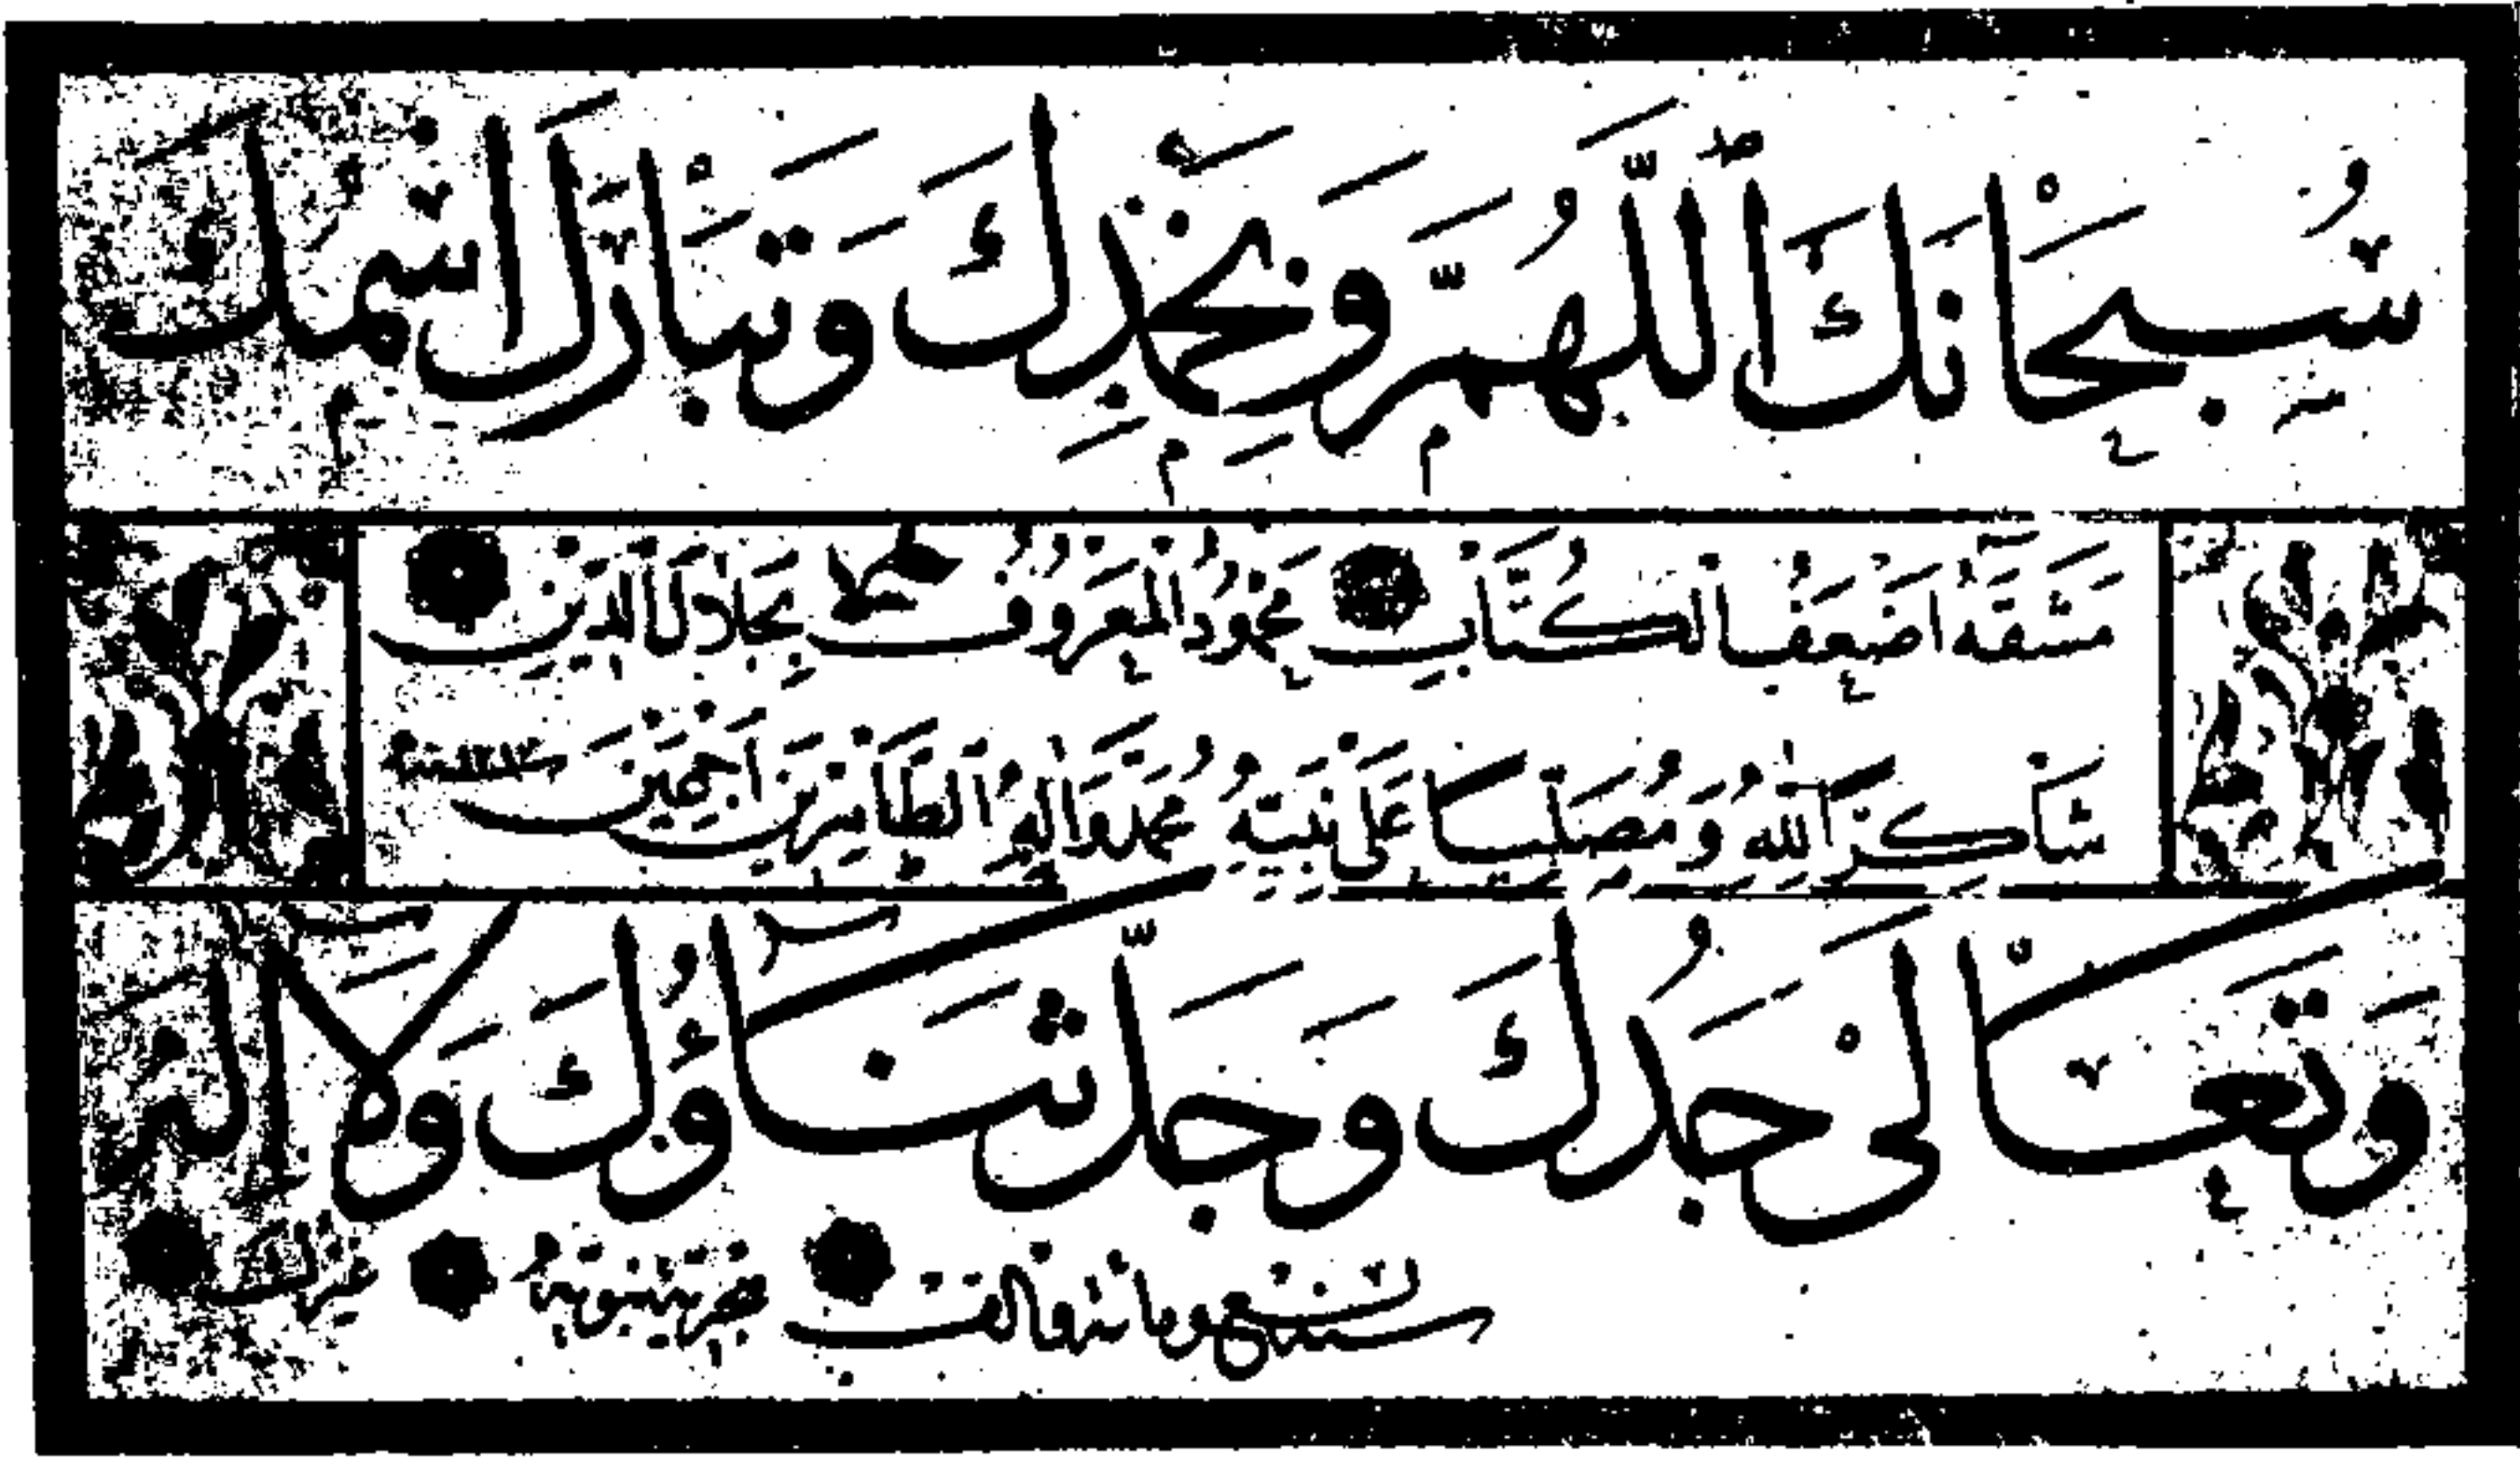 سُبْحَانَكَ اللّٰهُمَّ وَبِحَمْدِكَ وَتَبَارَكَ اسْمُكَ
مَشَقَهُ اَضْعَفُ الْكُتَّابِ مَحْمُودُ الْمَعْرُوفُ بِجَلَالِ الدِّينِ
شَاكِرَ اللهِ وَمُصَلِّيًا عَلَى نَبِيِّهِ مُحَمَّدٍ وَاٰلِهِ الطَّاهِرِينَ اَجْمَعِينَ
وَتَعَالٰى جَدُّكَ وَجَلَّ ثَنَاؤُكَ وَلَا اِلٰهَ
غَيْرُكَ